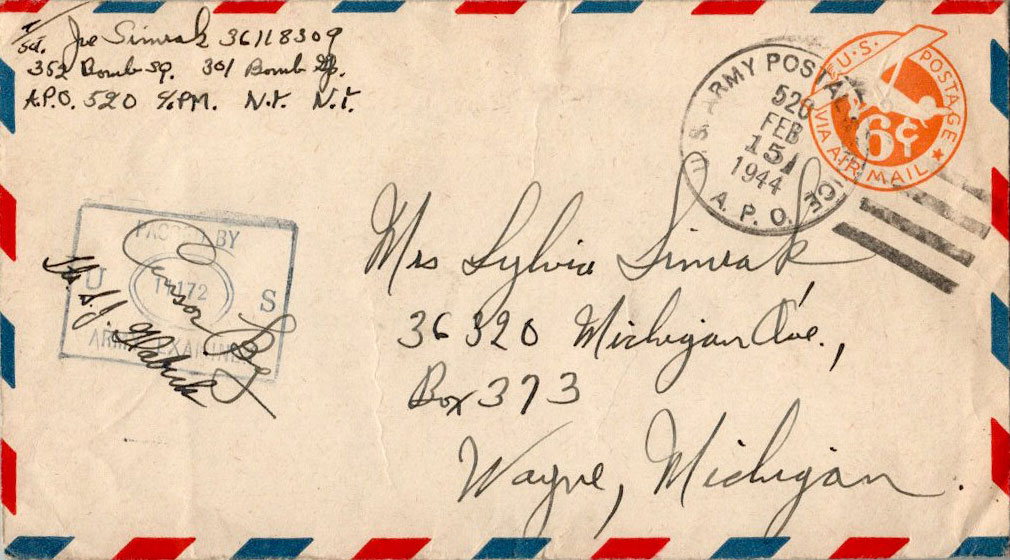 T/Sgt. Joe Simrak 36118309
352 Bomb Sq. 301 Bomb Gp.
A.P.O. 520 c/o PM. N.Y. N.Y.
U.S. ARMY POSTAL
520
FEB
15
1944
A.P.O.
U.S. POSTAGE
6¢
VIA AIR MAIL
PASSED BY
U S
ARMY EXAMINER
Mrs Sylvia Simrak
36320 Michigan Ave.,
Box 373
Wayne, Michigan.